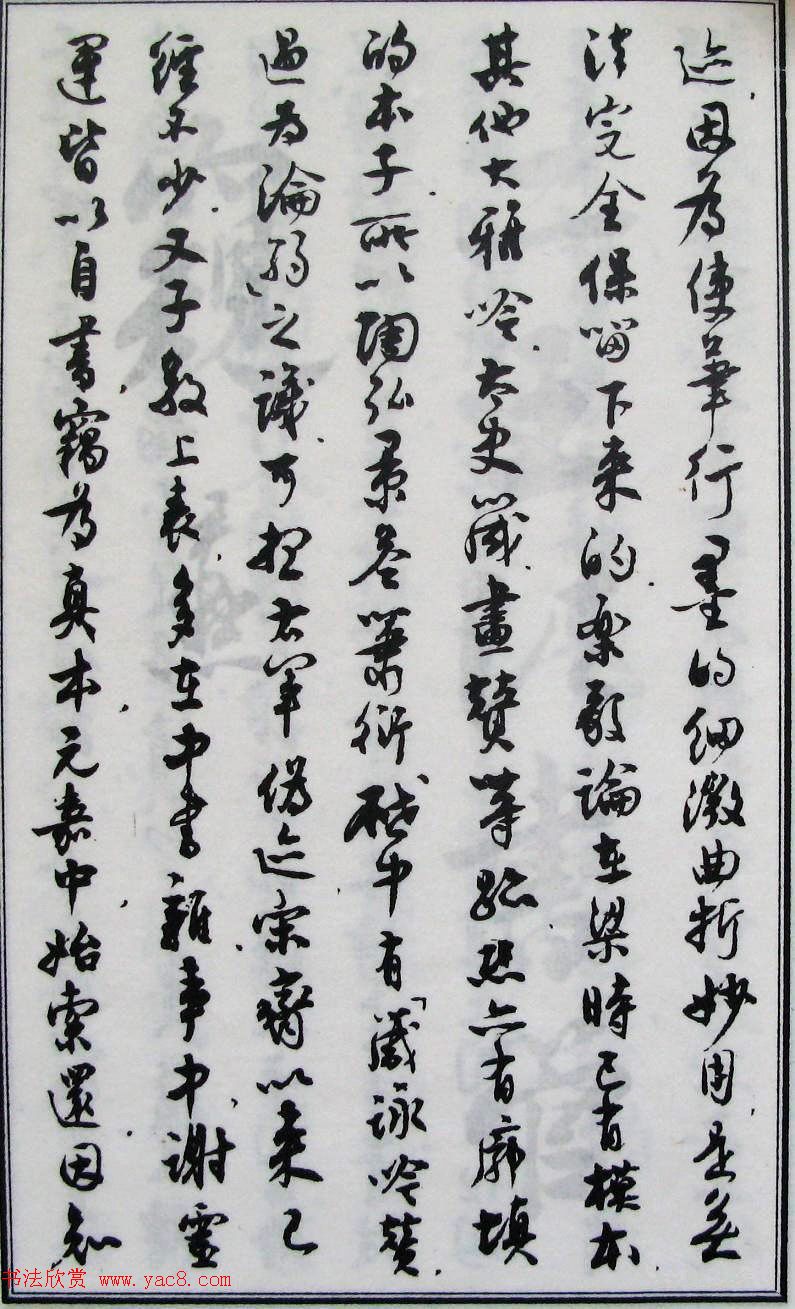 迹，因为使笔行墨的细微曲折妙用是无
法完全保留下来的，乐毅论在梁时已有模本，
其他大雅吟，太史箴，画赞等迹，恐亦有廓填
的本子，所以陶弘景答萧衍启中有「箴咏吟赞，
过为沦弱」之议，可想右军伪迹宋齐以来已
经不少，又子敬上表，多在中书杂事中，谢灵
运皆以自书窃为真本，元嘉中始索还，因知
书法欣赏 www.yac8.com